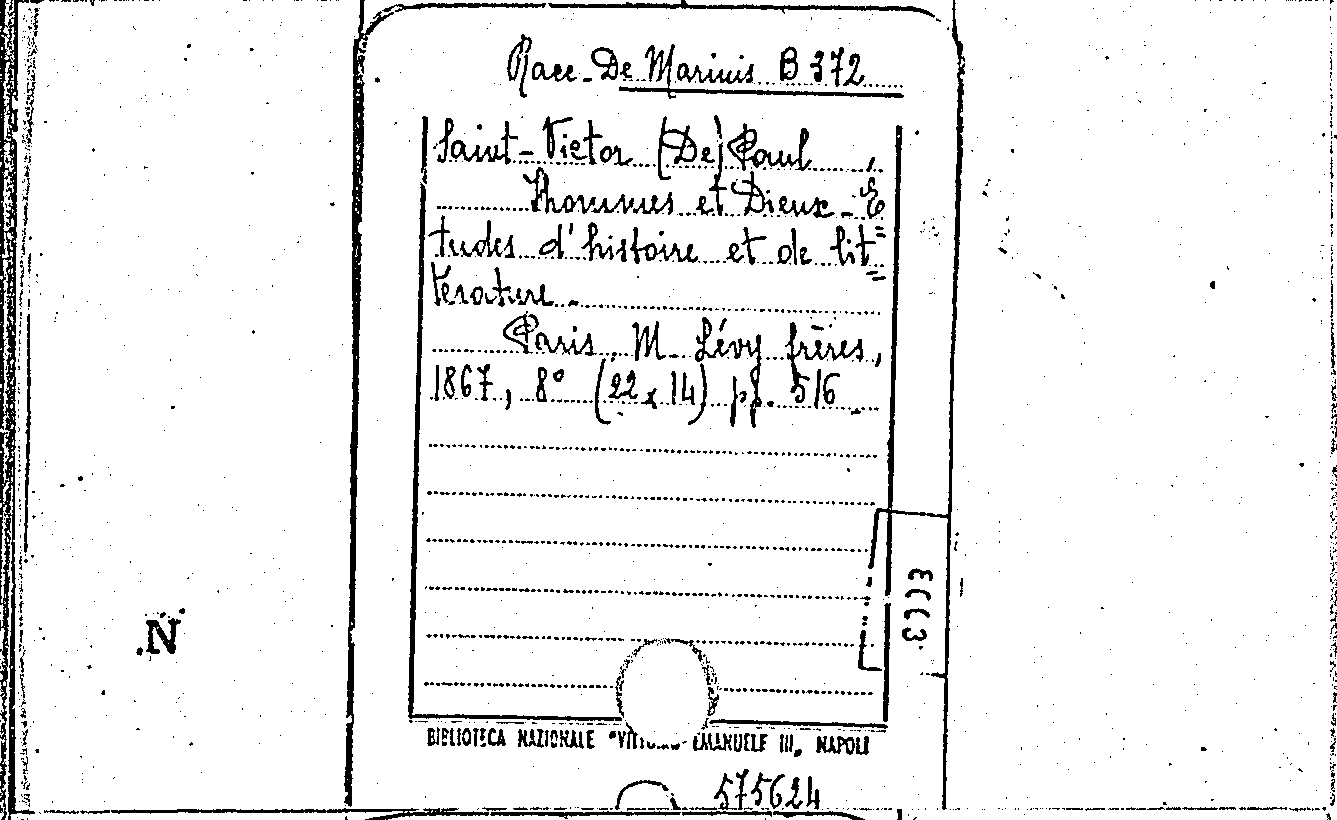 Racc. De Marinis B 372
Saint-Victor (De) Paul
Hommes et Dieux - É=
tudes d'histoire et de lit=
térature.
Paris, M. Lévy frères,
1867, 8° (22 x 14) pp. 516.
N
BIBLIOTECA NAZIONALE "VITTORIO EMANUELE III„ NAPOLI
575624